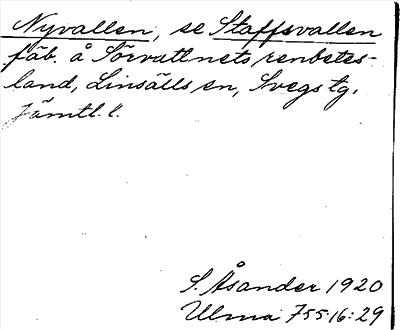 Nyvallen, se Staffsvallen
fäb. å Sörvattnets renbetes-
land, Linsälls sn, Svegs tg.
Jämtl. l.
S. Åsander 1920
Ulma 755:16:29